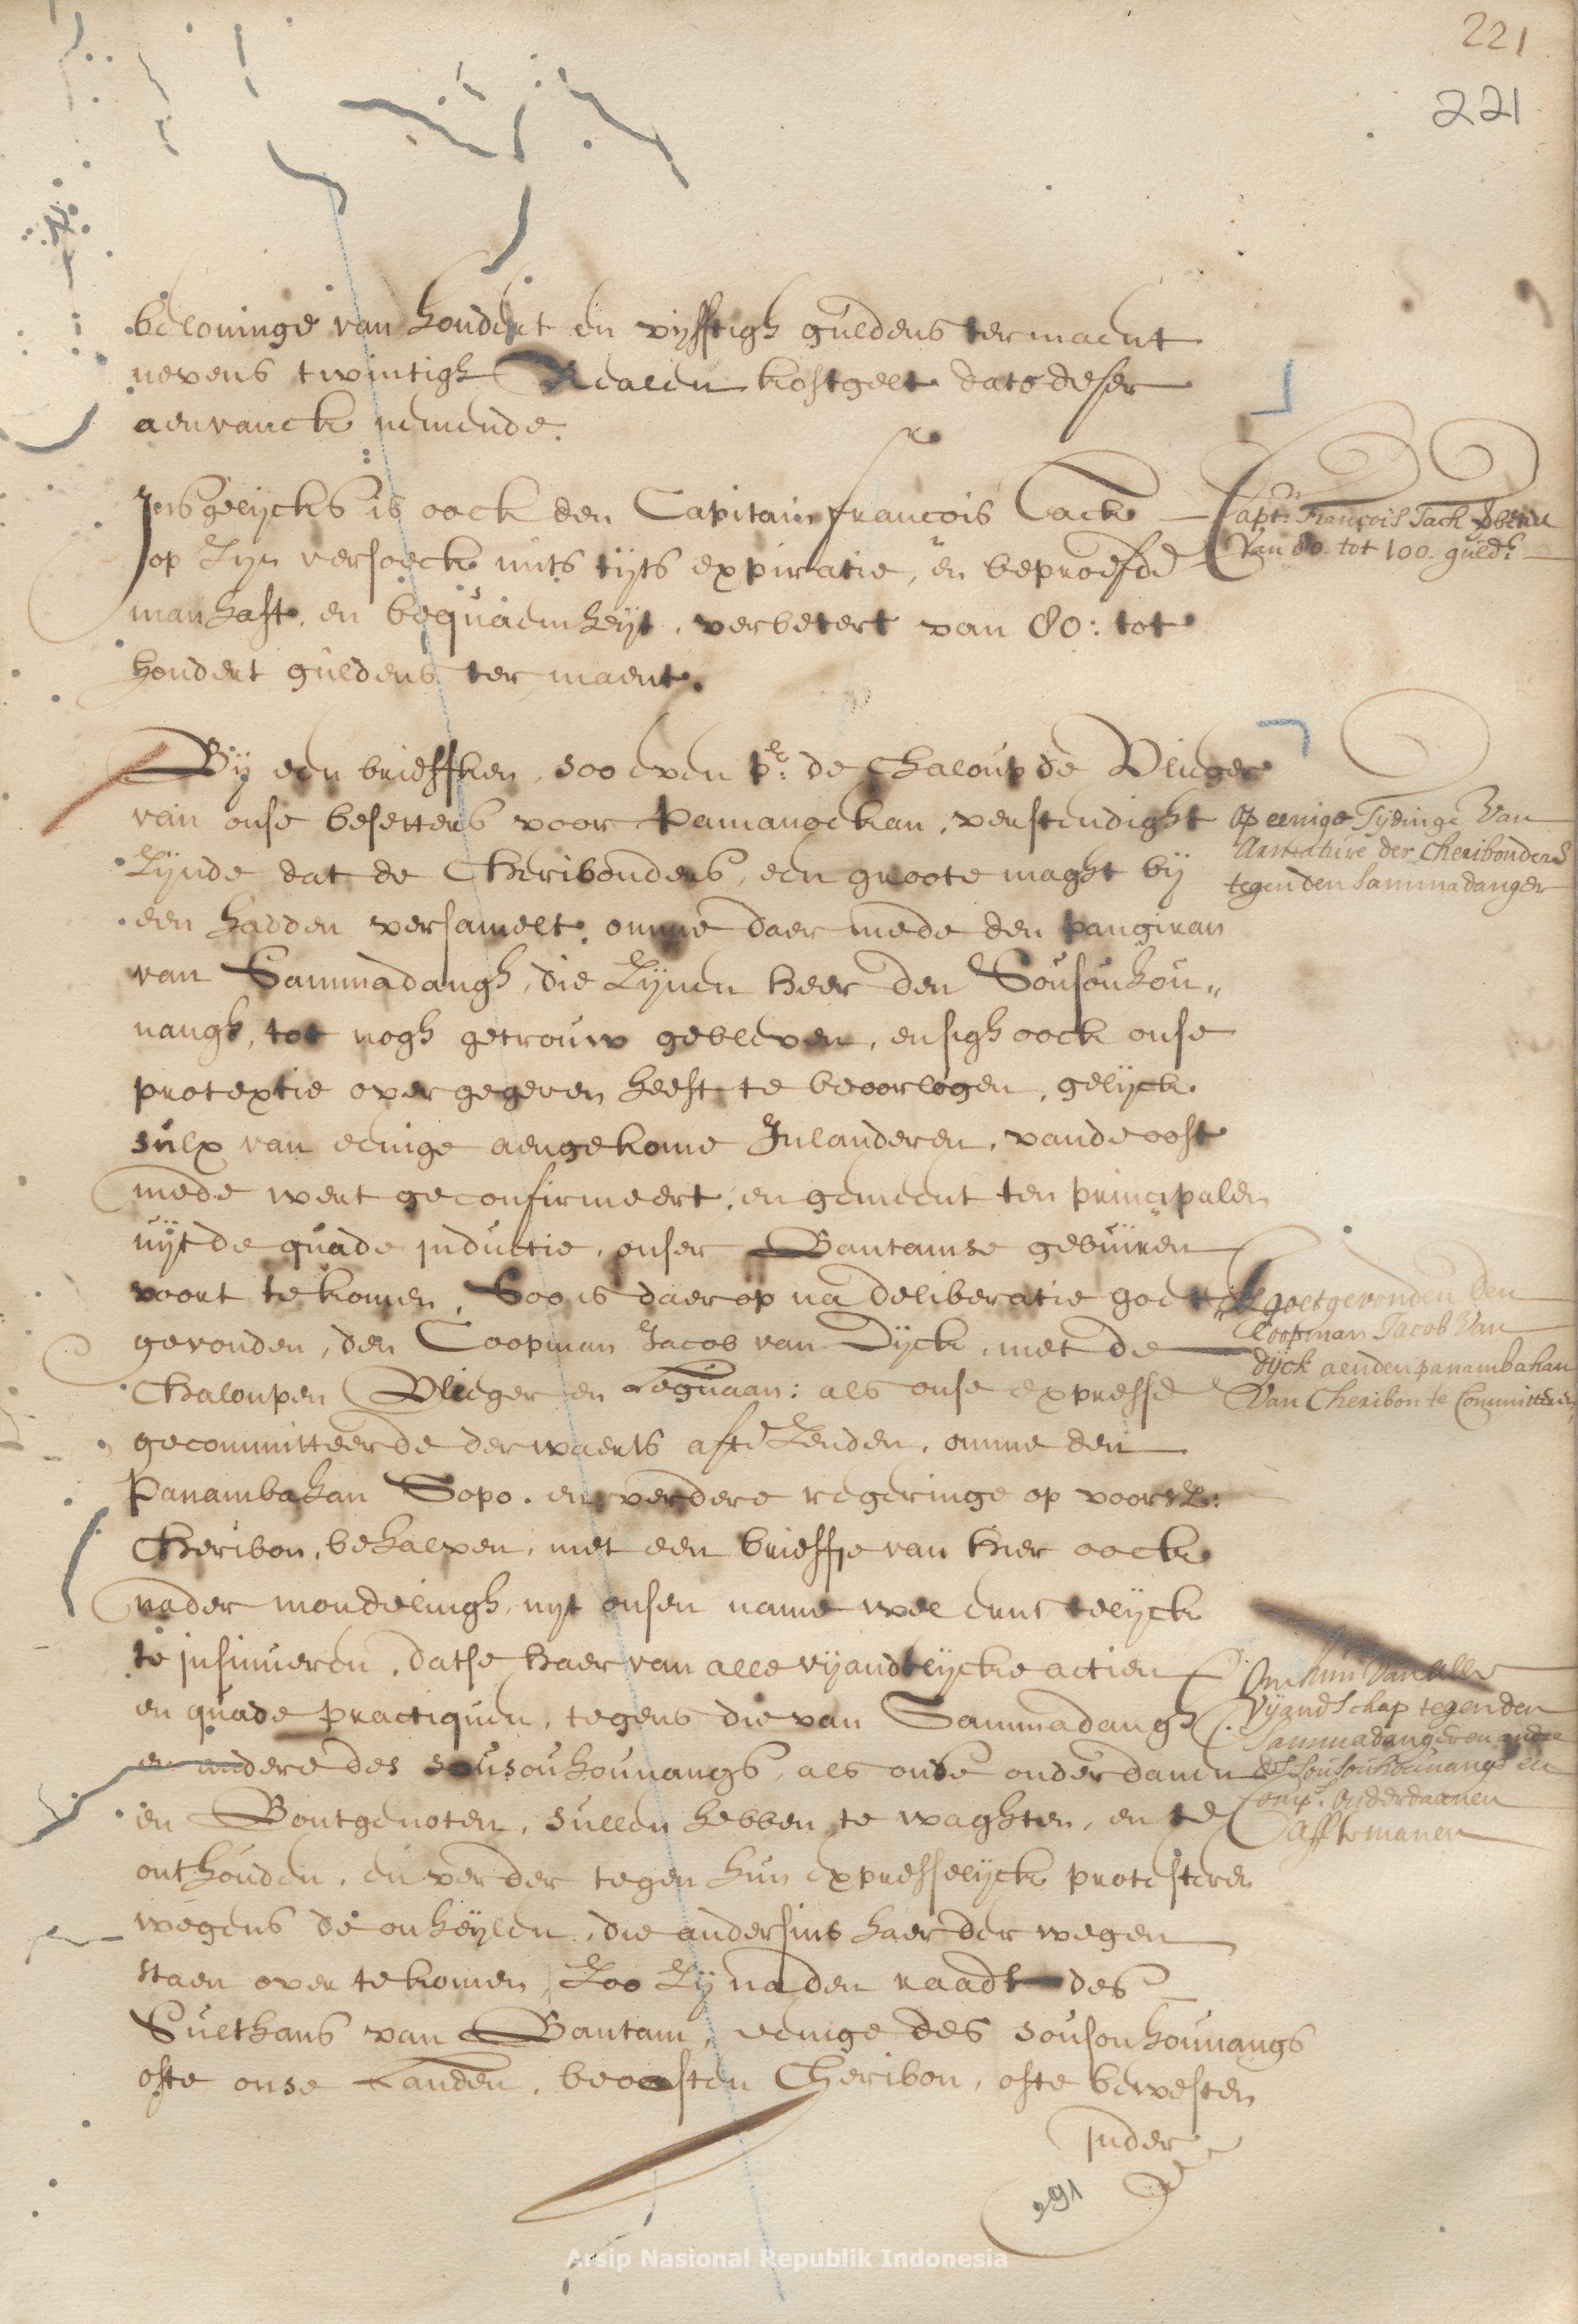 221
221
beloninge van hondert en vijfftigh guldens ter maent
nevens twintigh Realen kostgelt dato deser
aenvanck nemende.
Insgelijcks is oock den Capitain francois Tack
op zijn versoeck mits tijts expiratie, en beproefde
manhaft. en bequaemheijt, verbetert van 80: tot
hondert guldens ter maent.
Capt: Francois Tack verbetert
Van 80. tot 100. guld:s
Bij een brieffken, soo even pr: de Chaloup de Vlieger
van onse besetters voor Pamanoekan, verstendight
zijnde dat de Cheribonders, een groote maght bij
een hadden versamelt, omme daer mede den pangiran
van Sammadangh, die zijnen heer den Sousouhou„
nangh, tot nogh getrouw gebleven, en sigh oock onse
protextie overgegeven heeft te beoorlogen, gelijck
sulx van eenige aengekome Inlanderen, vande oost
mede wert geconfirmeert, en gemeent ten principalen
uijt de quade inductie, onser Bantamse gebuuren
voort te komen, Soo is daer op na deliberatie goet
gevonden, den Coopman Jacob van Dijck, met de
Chaloupen Vlieger en Leguaan: als onse expresse
gecommitteerde derwaerts afte zenden, omme den
Panambahan Sopo. en verdere regeringe op voorsz:
Cheribon, behalven, met een brieffje van hier oock
nader mondelingh, uijt onsen name wel ernstelijck
te insinueren, datse haer van alle vijandtlijcke actien
en quade practiquen, tegens die van Sammadangh
en andere des sousouhounangs, als onse onderdanen
en Bontgenoten, sullen hebben te waghten, en te
onthouden, en verder tegen hun expresselijck protesteren
wegens de onheijlen, die andersins haer derwegen
staen over te komen, Zoo zij na den raadt des
Sulthans van Bantam, eenige des sousouhounangs
ofte onse Landen, beoosten Cheribon, ofte bewesten
Inder
Op eenige Tijdinge Van
Armature der Cheribonders
tegen den Sammadanger
Is goetgevonden den
Coopman Jacob Van
Dijck aenden panambahan
Van Cheribon te Committeren,
Om hun Van alle
Vijandschap tegen den
Sammadanger en andre
des Sousouhounangs en
Comps. Onderdaanen
aff te manen
291
Arsip Nasional Republik Indonesia